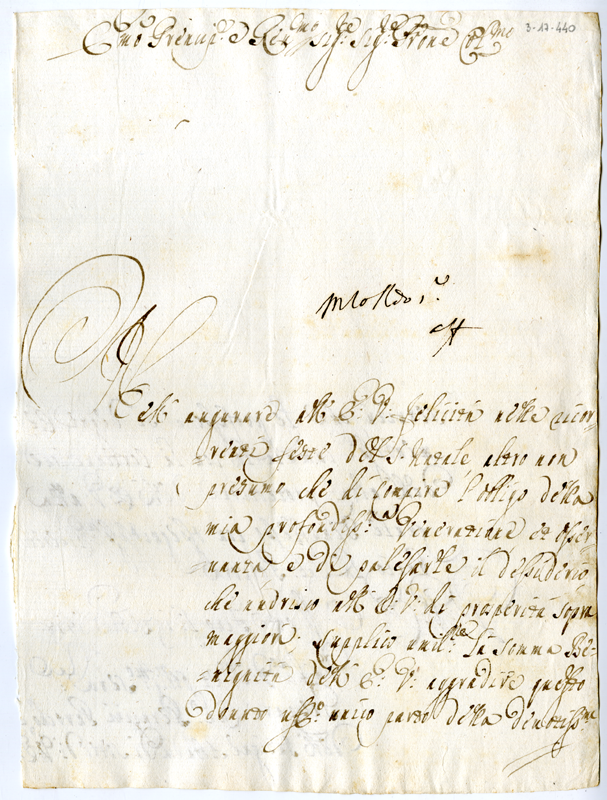 Em.mo Prencip.e e Rev.mo Sig.r Sig.r P.rone Col.mo
3-17-440
Nell augurare all E: V: felicità nelle ricor-
renti feste del S. Natale altro non
presumo che di compire l'obligo della
mia profondiss.a Venerazione et osser-
uanza, e di palesarle il desiderio
che nudrisco all E: V: di prosperità sopra
maggiori; supplico umil.te la somma Be-
nignità dell E: V: aggradire questo
douuto uff.o unico parto della diuotiss.ma